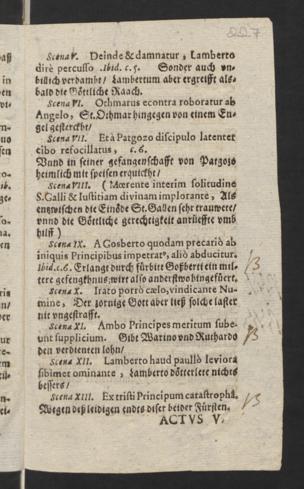 227
Scena V. Deinde & damnatur, Lamberto
dirè percusso. Ibid. c. 5. Sonder auch vn-
billich verdambt/ Lambertum aber ergreifft als-
bald die Göttliche Raach.
Scena VI. Othmarus econtra roboratur ab
Angelo, St. Othmar hingegen von einem En-
gel gesterckht/
Scena VII. Età Patgozo discipulo latenter
cibo refocillatus, c. 6.
Vnnd in seiner gefangenschafft von Patgozo
heimlich mit speisen erquickht/
Scena VIII. (Mœrente interim solitudine
S. Galli & Iustitiam divinam implorante, Als
entzwischen die Einöde St. Gallen sehr trauwert/
vnnd die Göttliche gerechtigkeit anrüefft vmb
hilff)
Scena IX. A Gosberto quodam precariò ab
iniquis Principibus impetratᵒ, aliò abducitur.
Ibid. c. 6. Erlangt durch fürbitt Gosberti ein mil-
tere gefengkhnus/wirt also anderstwohin gefüert.
Scena X. Irato porrò cœlo, vindicante Nu-
mine, Der zornige Gott aber ließ solche laster
nit vngestrafft.
Scena XI. Ambo Principes meritum sube-
unt supplicium. Gibt Warino vnd Ruthardo
den verdienten lohn/
Scena XII. Lamberto haud paullò leviora
sibimet ominante, Lamberto dötterlete nichts
bessers/
Scena XIII. Ex tristi Principum catastrophâ.
Wegen deß leidigen endts diser beider Fürsten.
ACTVS V.